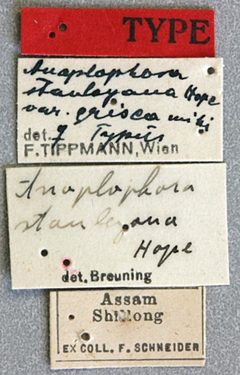 TYPE
Anaplophora
stanleyana Hope
var. grisea mihi
det. Typus
F. TIPPMANN, Wien
Anaplophora
stanleyana
Hope
det. Breuning
Assam
Shillong
EX COLL. F. SCHNEIDER